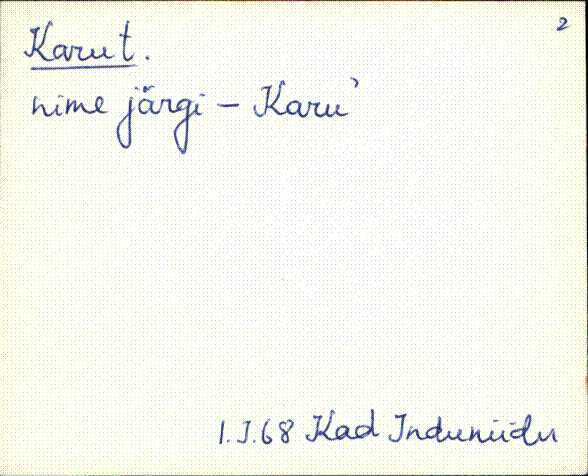 2
Karut.
nime järgi – Karu'
1.I.68 Kad Induniidu